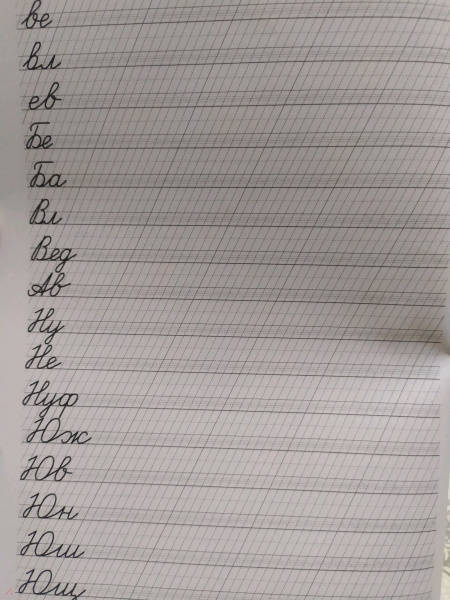 ве
вл
ев
Бе
Ба
Вл
Вед
Ав
Ну
Не
Нуф
Юж
Юв
Юн
Юш
Ющ